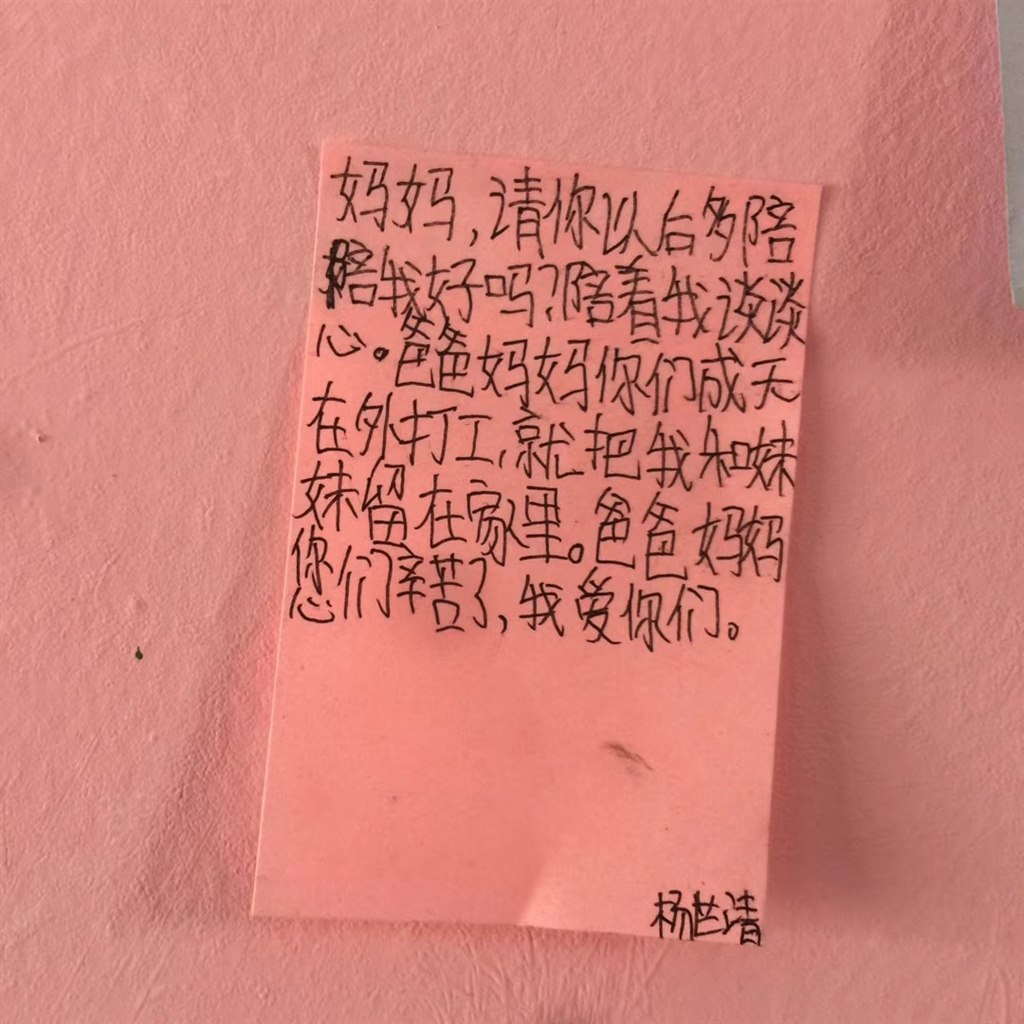 妈妈,请你以后多陪
陪我好吗?陪着我谈谈
心。爸爸妈妈你们成天
在外打工,就把我和妹
妹留在家里。爸爸妈妈
您们辛苦了,我爱你们。
杨芷清